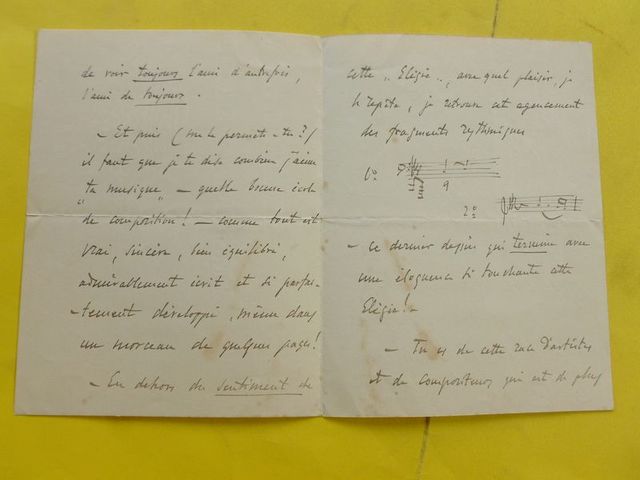 de voir toujours l'ami d'autrefois,
l'ami de toujours.
- Et puis (me le permets-tu?)
il faut que je te dise combien j'aime
"ta musique" - quelle bonne école
de composition! - comme tout est
vrai, sincère, bien équilibré,
admirablement écrit et si parfai-
-tement développé, même dans
un morceau de quelques pages!
- En dehors du sentiment de
cette "Elégie", avec quel plaisir, je
le répète, je retrouve cet agencement
des fragments rythmiques
1º
2º
- ce dernier dessin qui termine avec
une éloquence si touchante cette
Elégie!-
- Tu es de cette race d'artistes
et de compositeurs qui est de plus